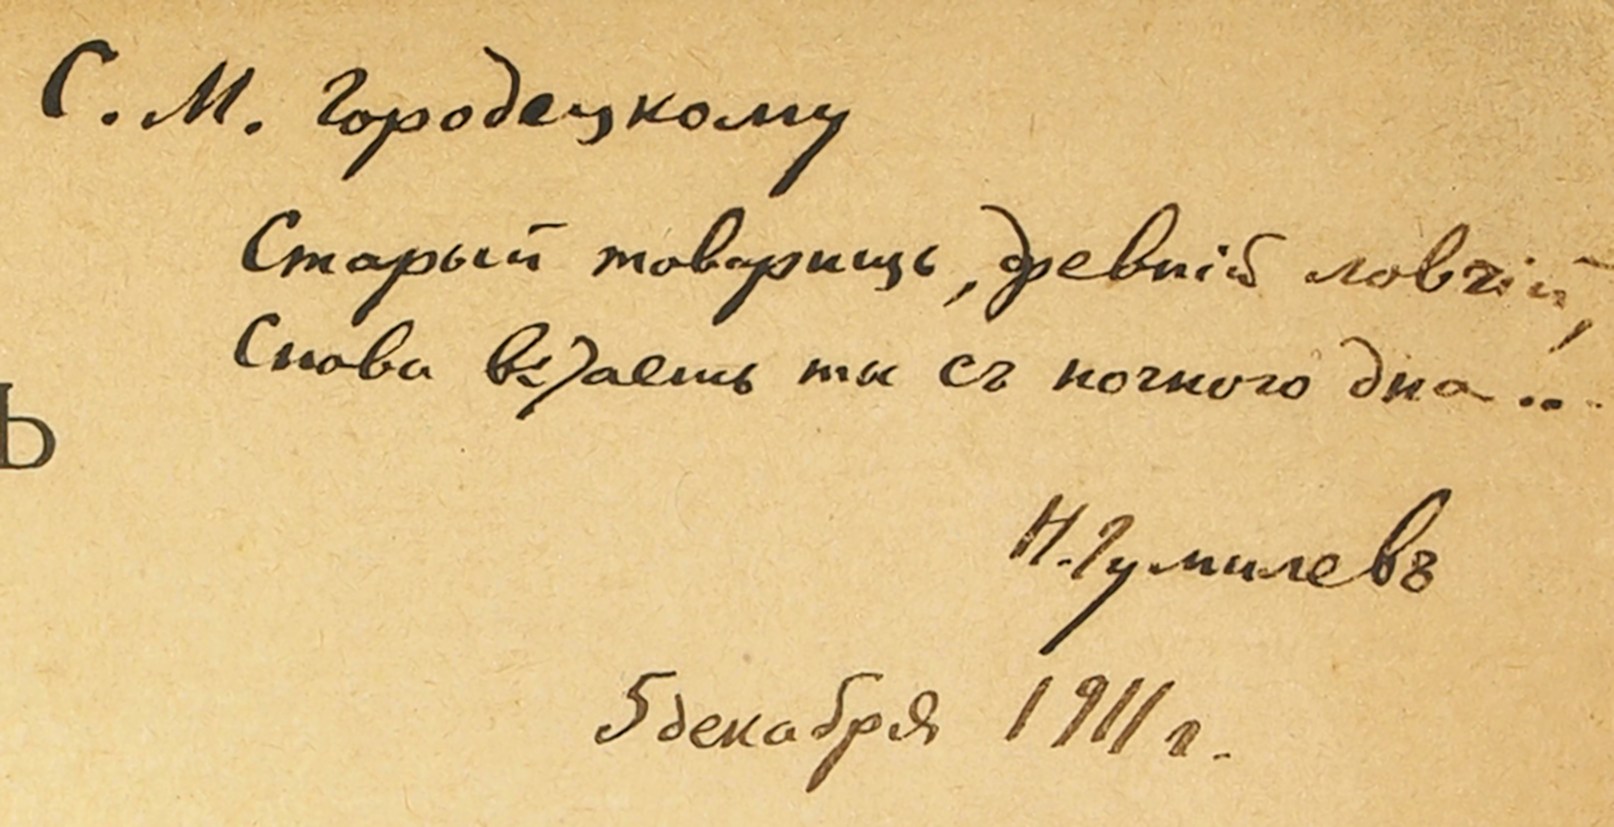 С. М. Городецкому
Старый товарищь, древній ловчій,
Снова встаешь ты съ ночного дна...
Н. Гумилевъ
5 декабря 1911 г.